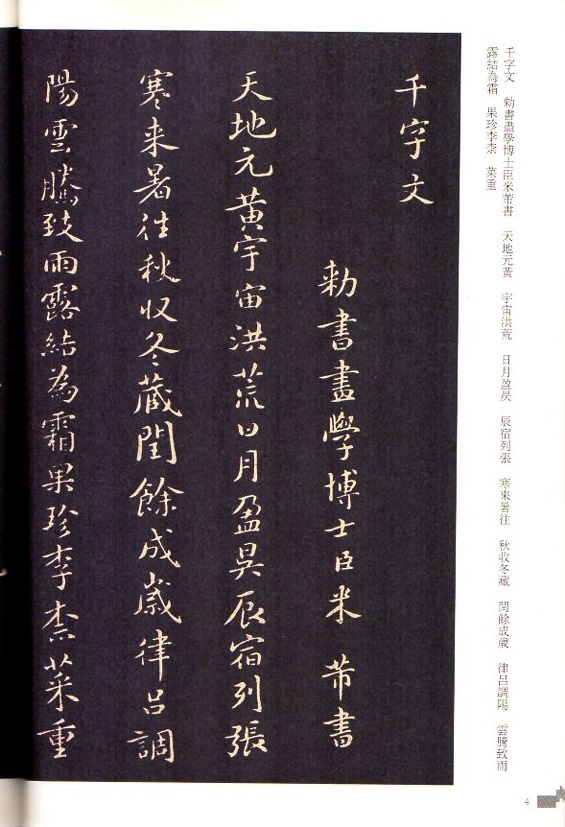 千字文　勅書畫學博士臣米芾書　天地元黃　宇宙洪荒　日月盈昃　辰宿列張　寒來暑往　秋收冬藏　閏餘成歲　律呂調陽　雲騰致雨
露結為霜　果珍李柰　菜重
千字文
勅書畫學博士臣米芾書
天地元黃宇宙洪荒日月盈昃辰宿列張
寒来暑往秋收冬藏閏餘成歲律呂調
陽雲騰致雨露結為霜果珍李柰菜重
4